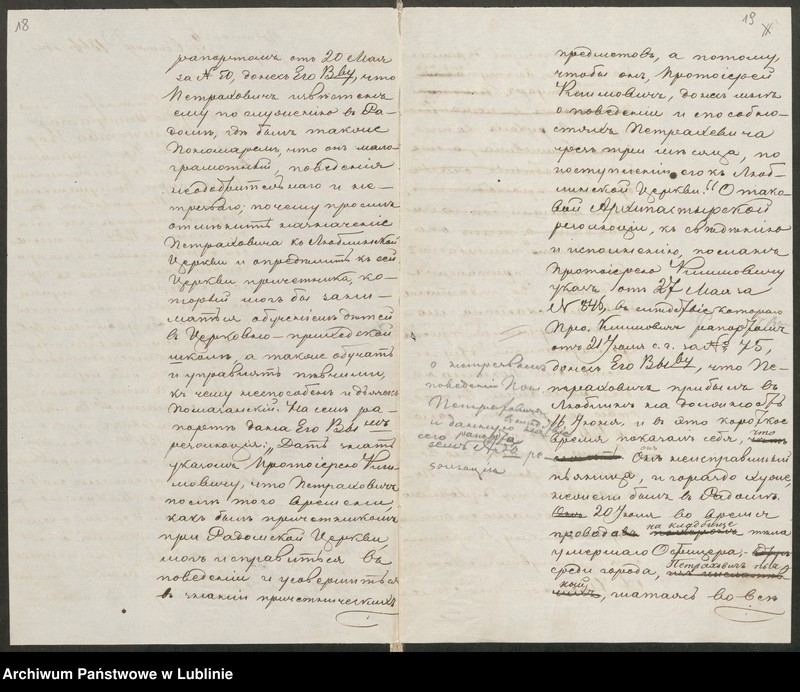 18
рапортомъ отъ 20 Мая
за № 50, донесъ Его Вву, что
Петраховичъ извѣстенъ
ему по служенію въ Ра-
домѣ, гдѣ былъ также
Пономаремъ, что онъ мало-
грамотный, поведенія
неодобрительнаго и не-
трезваго; почему просилъ
отмѣнить назначеніе
Петраховича къ Люблинской
Церкви и опредѣлить къ сей
Церкви причетника, ко-
торый могъ бы зани-
маться обученіемъ дѣтей
въ Церковно-приходской
школѣ, а также обучать
и управлять пѣвчими,
къ чему неспособенъ и дьячекъ
На семъ ра-
портѣ дана Его Вы мъ
резолюція: „Дать знать
указомъ Протоіерею Кли-
мовичу, что Петраховичъ
послѣ того времени,
какъ былъ причетникомъ
при Радомской Церкви,
могъ исправиться въ
поведеніи и усовершиться
въ знаніи причетническихъ
19
предметовъ, а потому,
чтобы онъ, Протоіерей
Климовичъ, донесъ мнѣ
о поведеніи и способно-
стяхъ Петраховича
чрезъ три мѣсяца, по
поступленіи его къ Люб-
линской Церкви.“ О тако-
вой Архипастырской
резолюціи, къ свѣдѣнію
и исполненію, посланъ
Протоіерею Климовичу
указъ отъ 27 Мая за
№ 846, въ слѣдствіе котораго
Про. Климовичъ рапортомъ
отъ 21 Іюня с. г. за № 75,
донесъ Его Вы ву, что Пе-
траховичъ прибылъ въ
Люблинъ на должность
16 Іюня. и въ это короткое
время показалъ себя, что
онъ неисправимый
пьяница, и гораздо хуже,
нежели былъ въ Радомѣ.
20 Іюня во время
провода на кладбище тѣла
умершаго Офицера,
среди города, Петраховичъ
шатаясь во всѣ
о нетрезвомъ
поведеніи Пон.
Петраховича
и данную на
сего рапорта
семъ ре-
золюцію